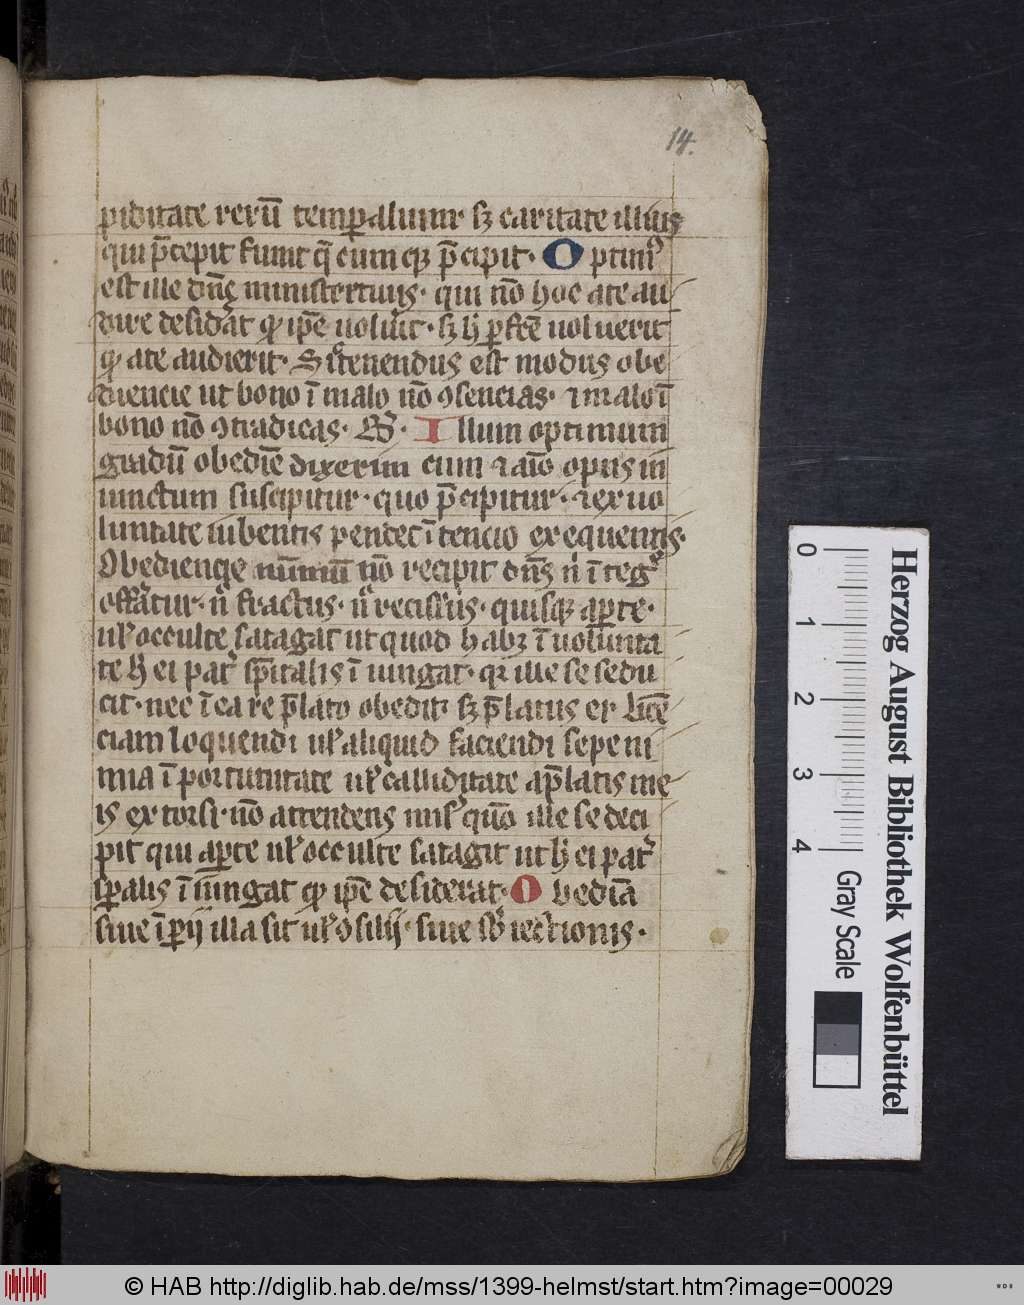 14.
piditate rerū temꝑalium sꝫ caritate illius
qui p̄cepit fiunt q̄ cumcꝫ p̄cipit· Optimꝰ
est ille dn̄e minister tuus· qui nō hoc a te au
dire desiderat qd ip̄e voluit· sꝫ h̄ ꝑfcē voluerit
qd a te audierit· Sic tenendus est modus obe
diencie ut bono ī malo nō ꝯsencias· ⁊ malo ī
bono nō ꝯtradicas· B̄· Illum optimum
gradū obediē dixerim cum ⁊ aīo opus in
iunctum suscipitur· quo p̄cipitur· ⁊ ex vo
luntate iubentis pendet ītencio exequentis·
Obediencie nō recipit dn̄s n̄ īteg̾
offeratur· n̄ fractus· n̄ recisus· quisqꝫ aperte·
ul̾ occulte satagat ut quod habꝫ ī volunta
te h̄ ei pat̾ sp̄italis ī iungat· q̾ ille se sedu
cit· nec ī ea re p̄lato obedit· sꝫ p̄latus ei· licē
ciam loquendi ul̾ aliquid faciendi sepe ni
mia ī portunitate ul̾ calliditate a p̄latis me
is extorsi· nō attendens
 quō ille se deci
pit qui aperte ul̾ occulte satagit ut h̄ ei pat̾
sp̄alis ī iungat qd ip̄e desiderat· Obediā
siue īꝑij illa sit ul̾ ꝯsilij· siue sb̾iectionis·
0 1 2 3 4
Gray Scale
Herzog August Bibliothek Wolfenbüttel
© HAB http://diglib.hab.de/mss/1399-helmst/start.htm?image=00029